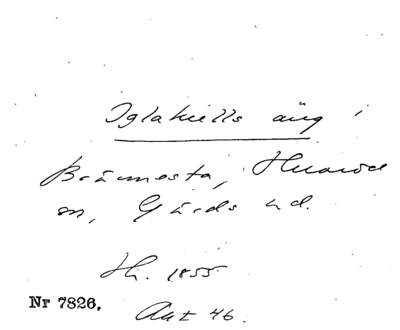 Iglakiells äng i
Brännesta, Huaröd
sn, Gärds hd.
Hh. 1855
Nr 7826. Akt 46.